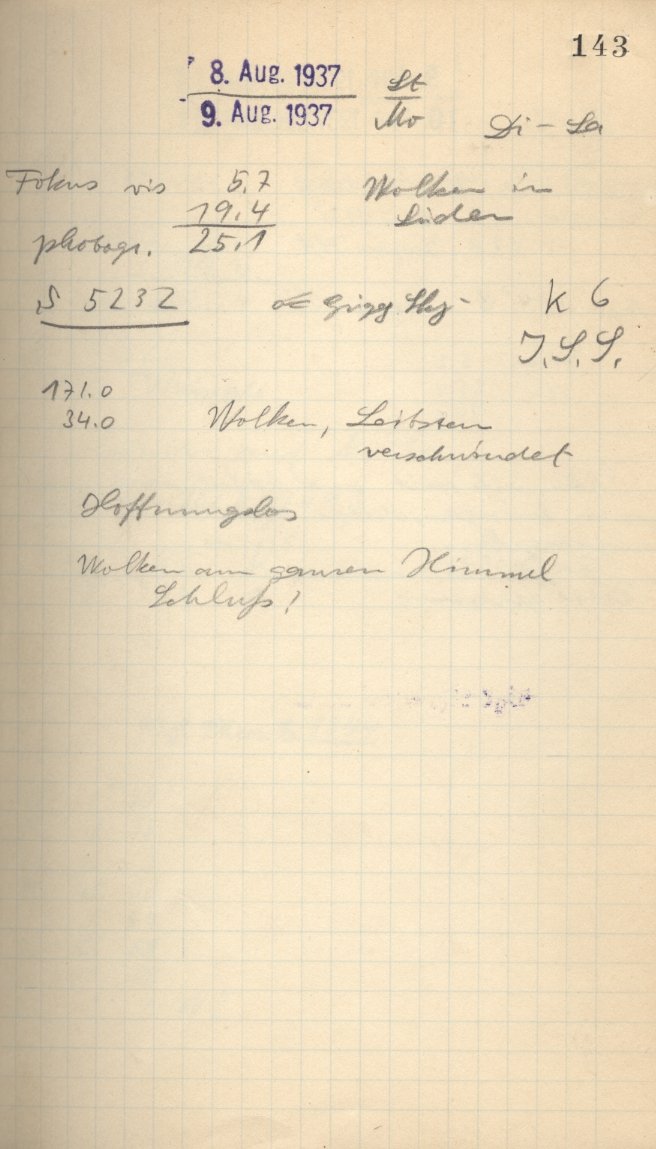 143
8. Aug. 1937 St
9. Aug. 1937 Mo Di – La
Fokus vis 5,7 Wolken in
19,4 Süden
photogr. 25,1
S 5232 K 6
J.S.S.
171.0
34.0 Wolken, Leitstern
verschwindet
Hoffnungslos
Wolken am ganzen Himmel
Schluß!